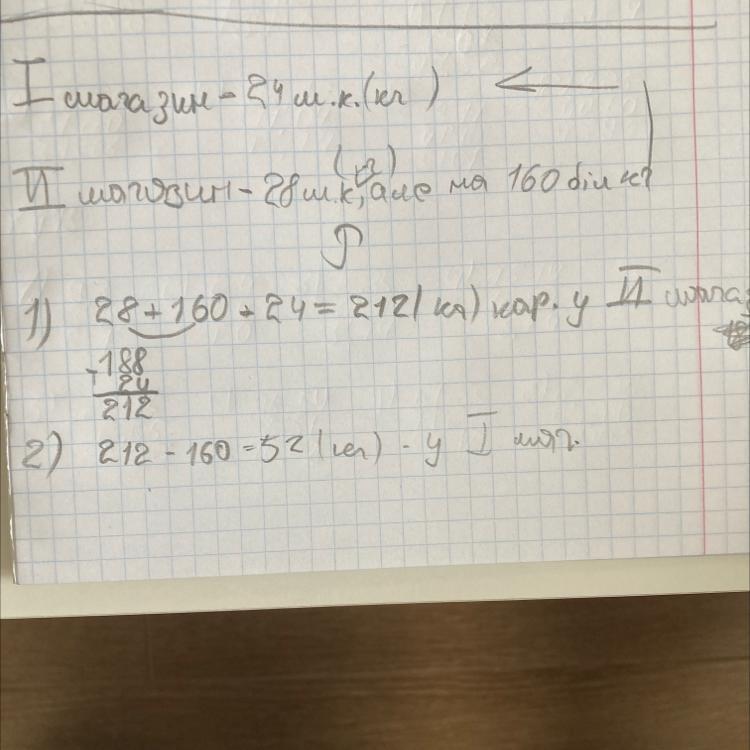 I магазин - 24 м.к. (кг)
(кг)
II магазин - 28 м.к, але на 160 більше
1) 28 + 160 + 24 = 212 (кг) кар. у II мага
188
+ 24
212
2) 212 - 160 = 52 (кг) - у I маг.